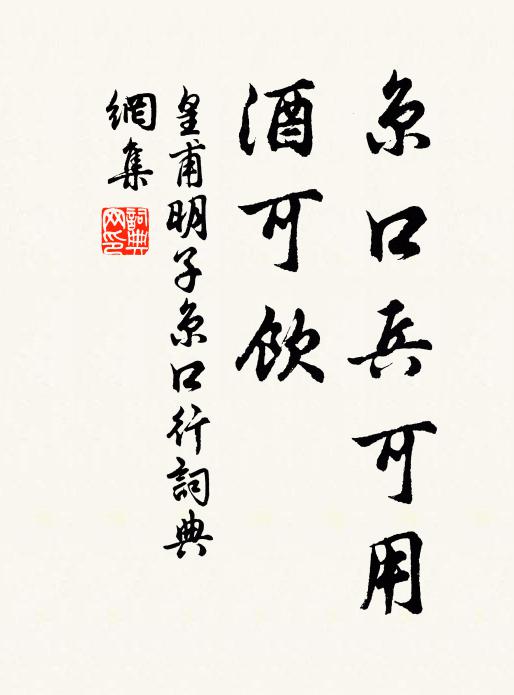 京口兵可用
酒可飲
皇甫明子京口行詞典
網集
詞典
网印